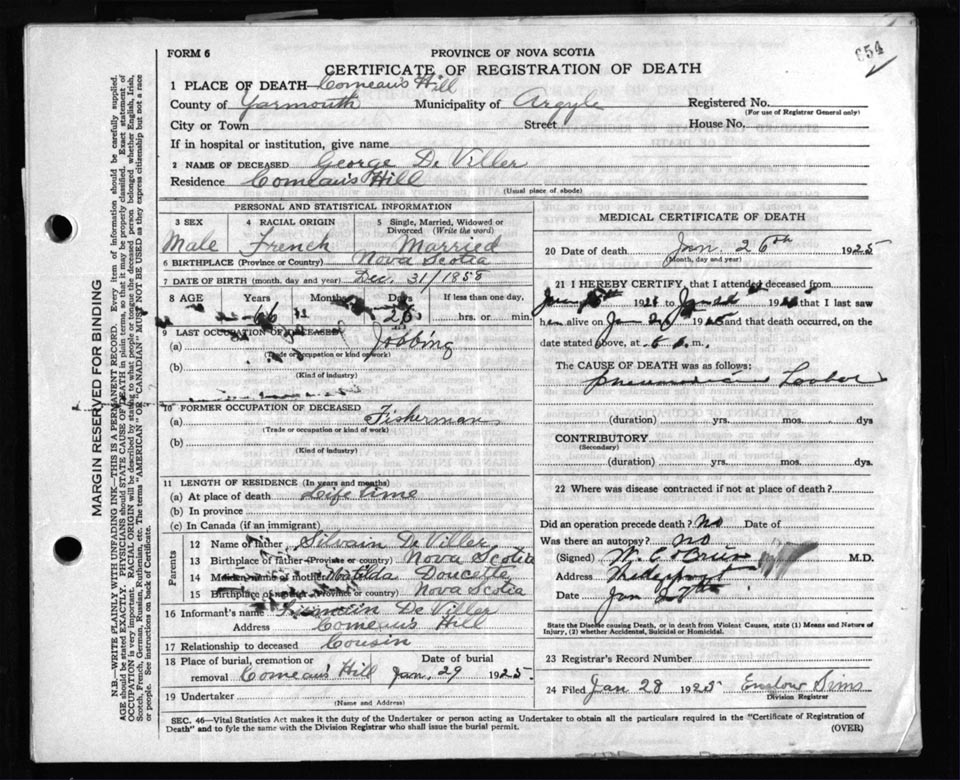 654
FORM 6
PROVINCE OF NOVA SCOTIA
CERTIFICATE OF REGISTRATION OF DEATH
1 PLACE OF DEATH Comeau's Hill
County of Yarmouth Municipality of Argyle Registered No.
(For use of Registrar General only)
City or Town Street House No.
If in hospital or institution, give name
2 NAME OF DECEASED George De Viller
Residence Comeau's Hill
(Usual place of abode)
PERSONAL AND STATISTICAL INFORMATION
3 SEX 4 RACIAL ORIGIN 5 Single, Married, Widowed or Divorced (Write the word)
Male French Married
6 BIRTHPLACE (Province or Country) Nova Scotia
7 DATE OF BIRTH (month, day and year) Dec. 31/1858
8 AGE Years Months Days If less than one day,
66 26 hrs. or min.
9 LAST OCCUPATION OF DECEASED
(a) Jobbing
(Trade or occupation or kind of work)
(b)
(Kind of industry)
10 FORMER OCCUPATION OF DECEASED
(a) Fisherman
(Trade or occupation or kind of work)
(b)
(Kind of industry)
11 LENGTH OF RESIDENCE (In years and months)
(a) At place of death Life time
(b) In province
(c) In Canada (if an immigrant)
Parents
12 Name of father Silvain De Viller
13 Birthplace of father (Province or country) Nova Scotia
14 Maiden name of mother Matilda Doucette
15 Birthplace of mother (Province or country) Nova Scotia
16 Informant's name De Viller
Address Comeau's Hill
17 Relationship to deceased Cousin
18 Place of burial, cremation or Date of burial
removal Comeau's Hill Jan. 29 1925
19 Undertaker
(Name and Address)
MEDICAL CERTIFICATE OF DEATH
20 Date of death Jan 26th 1925
(Month, day and year)
21 I HEREBY CERTIFY, that I attended deceased from
192 to 192 that I last saw
h alive on Jan 1925 and that death occurred, on
the date stated above, at m.
The CAUSE OF DEATH was as follows:
Pneumonia Lobar
(duration) yrs. mos. dys
CONTRIBUTORY
(Secondary)
(duration) yrs. mos. dys
22 Where was disease contracted if not at place of death?
Did an operation precede death? No Date of
Was there an autopsy? No
(Signed) W. C. O'Brien M.D.
Address
Date Jan 27th
State the Disease causing Death, or in death from Violent Causes, state (1) Means and Nature of
Injury, (2) whether Accidental, Suicidal or Homicidal.
23 Registrar's Record Number
24 Filed Jan 28 1925 Enslow Sims
Division Registrar
SEC. 46—Vital Statistics Act makes it the duty of the Undertaker or person acting as Undertaker to obtain all the particulars required in the "Certificate of Registration of
Death" and to fyle the same with the Division Registrar who shall issue the burial permit.
(OVER)
MARGIN RESERVED FOR BINDING
N.B.—WRITE PLAINLY WITH UNFADING INK—THIS IS A PERMANENT RECORD. Every item of information should be carefully supplied.
AGE should be stated EXACTLY. PHYSICIANS should STATE CAUSE OF DEATH in plain terms, so that it may be properly classified. Exact statement of
OCCUPATION is very important. RACIAL ORIGIN will be described by stating to what people or tongue the deceased person belonged whether English, Irish,
Scotch, French, German, Russian, Ruthenian, etc. The terms "AMERICAN" OR "CANADIAN" MUST NOT BE USED as they express citizenship but not a race
or people. See instructions on back of Certificate.